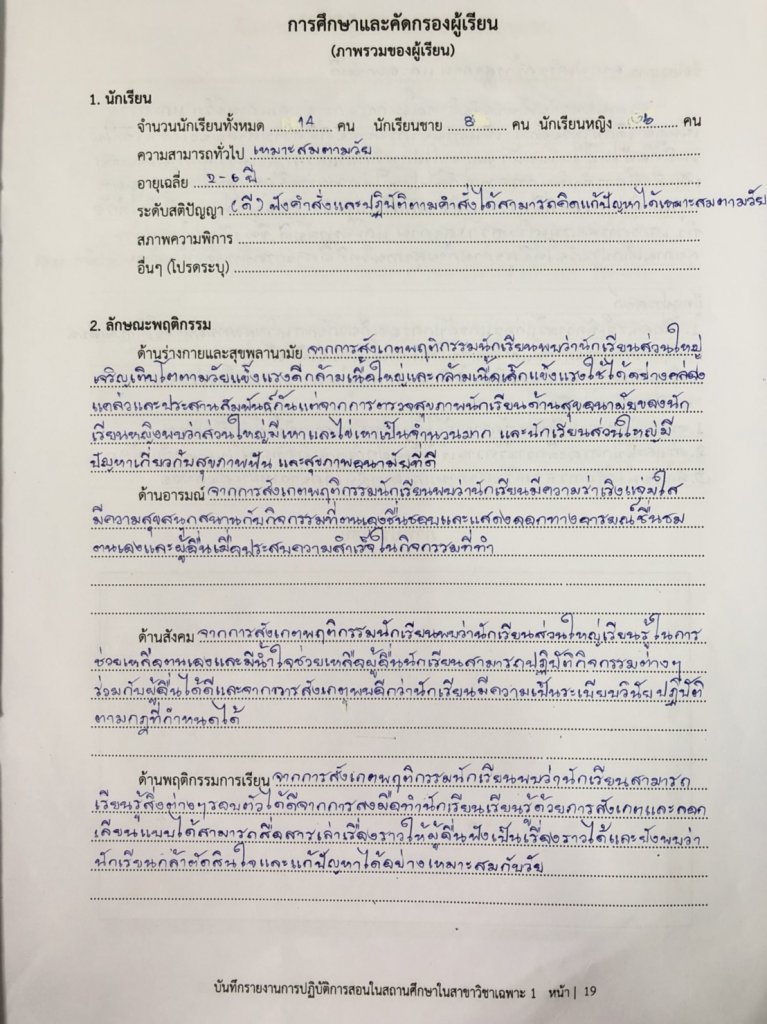 การศึกษาและคัดกรองผู้เรียน
(ภาพรวมของผู้เรียน)
1. นักเรียน
จำนวนนักเรียนทั้งหมด 14 คน นักเรียนชาย 8 คน นักเรียนหญิง 6 คน
ความสามารถทั่วไป เหมาะสมตามวัย
อายุเฉลี่ย 2-6 ปี
ระดับสติปัญญา (ดี) ฟังคำสั่งและปฏิบัติตามคำสั่งได้สามารถคิดแก้ปัญหาได้เหมาะสมตามวัย
สภาพความพิการ
อื่นๆ (โปรดระบุ)
2. ลักษณะพฤติกรรม
ด้านร่างกายและสุขพลานามัย จากการสังเกตพฤติกรรมนักเรียนพบว่านักเรียนส่วนใหญ่
เจริญเติบโตตามวัยแข็งแรงดีกล้ามเนื้อใหญ่และกล้ามเนื้อเล็กแข็งแรงใช้ได้อย่างคล่อง
แคล่วและประสานสัมพันธ์กันแต่จากการตรวจสุขภาพนักเรียนด้านสุขอนามัยของนัก
เรียนหญิงพบว่าส่วนใหญ่มีเหาและไข่เหาเป็นจำนวนมาก และนักเรียนส่วนใหญ่มี
ปัญหาเกี่ยวกับสุขภาพฟัน และสุขภาพอนามัยที่ดี
ด้านอารมณ์ จากการสังเกตพฤติกรรมนักเรียนพบว่านักเรียนมีความร่าเริงแจ่มใส
มีความสุขสนุกสนานกับกิจกรรมที่ตนเองชื่นชอบและแสดงออกทางอารมณ์ชื่นชม
ตนเองและผู้อื่นเมื่อประสบความสำเร็จในกิจกรรมที่ทำ
ด้านสังคม จากการสังเกตพฤติกรรมนักเรียนพบว่านักเรียนส่วนใหญ่เรียนรู้ในการ
ช่วยเหลือตนเองและมีน้ำใจช่วยเหลือผู้อื่นนักเรียนสามารถปฏิบัติกิจกรรมต่างๆ
ร่วมกับผู้อื่นได้ดีและจากการสังเกตุพบอีกว่านักเรียนมีความเป็นระเบียบวินัยปฏิบัติ
ตามกฎที่กำหนดได้
ด้านพฤติกรรมการเรียน จากการสังเกตพฤติกรรมนักเรียนพบว่านักเรียนสามารถ
เรียนรู้สิ่งต่างๆรอบตัวได้ดีจากการลงมือทำนักเรียนเรียนรู้ด้วยการสังเกตและลอก
เลียนแบบได้สามารถสื่อสารเล่าเรื่องราวให้ผู้อื่นฟังเป็นเรื่องราวได้และยังพบว่า
นักเรียนกล้าตัดสินใจและแก้ปัญหาได้อย่างเหมาะสมกับวัย
บันทึกรายงานการปฏิบัติการสอนในสถานศึกษาในสาขาวิชาเฉพาะ 1 หน้า | 19